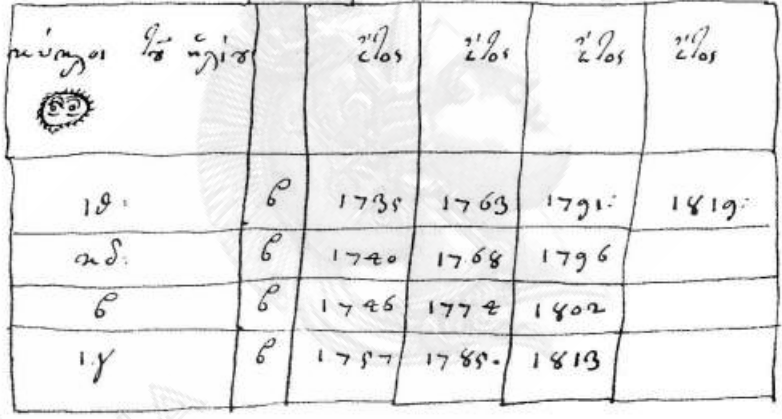 κύκλοι τοῦ ἡλίου ἔτος ἔτος ἔτος ἔτος
ιθ: β 1735 1763 1791: 1819:
κδ: β 1740 1768 1796
β β 1746 1774 1802
ιγ β 1757 1785. 1813